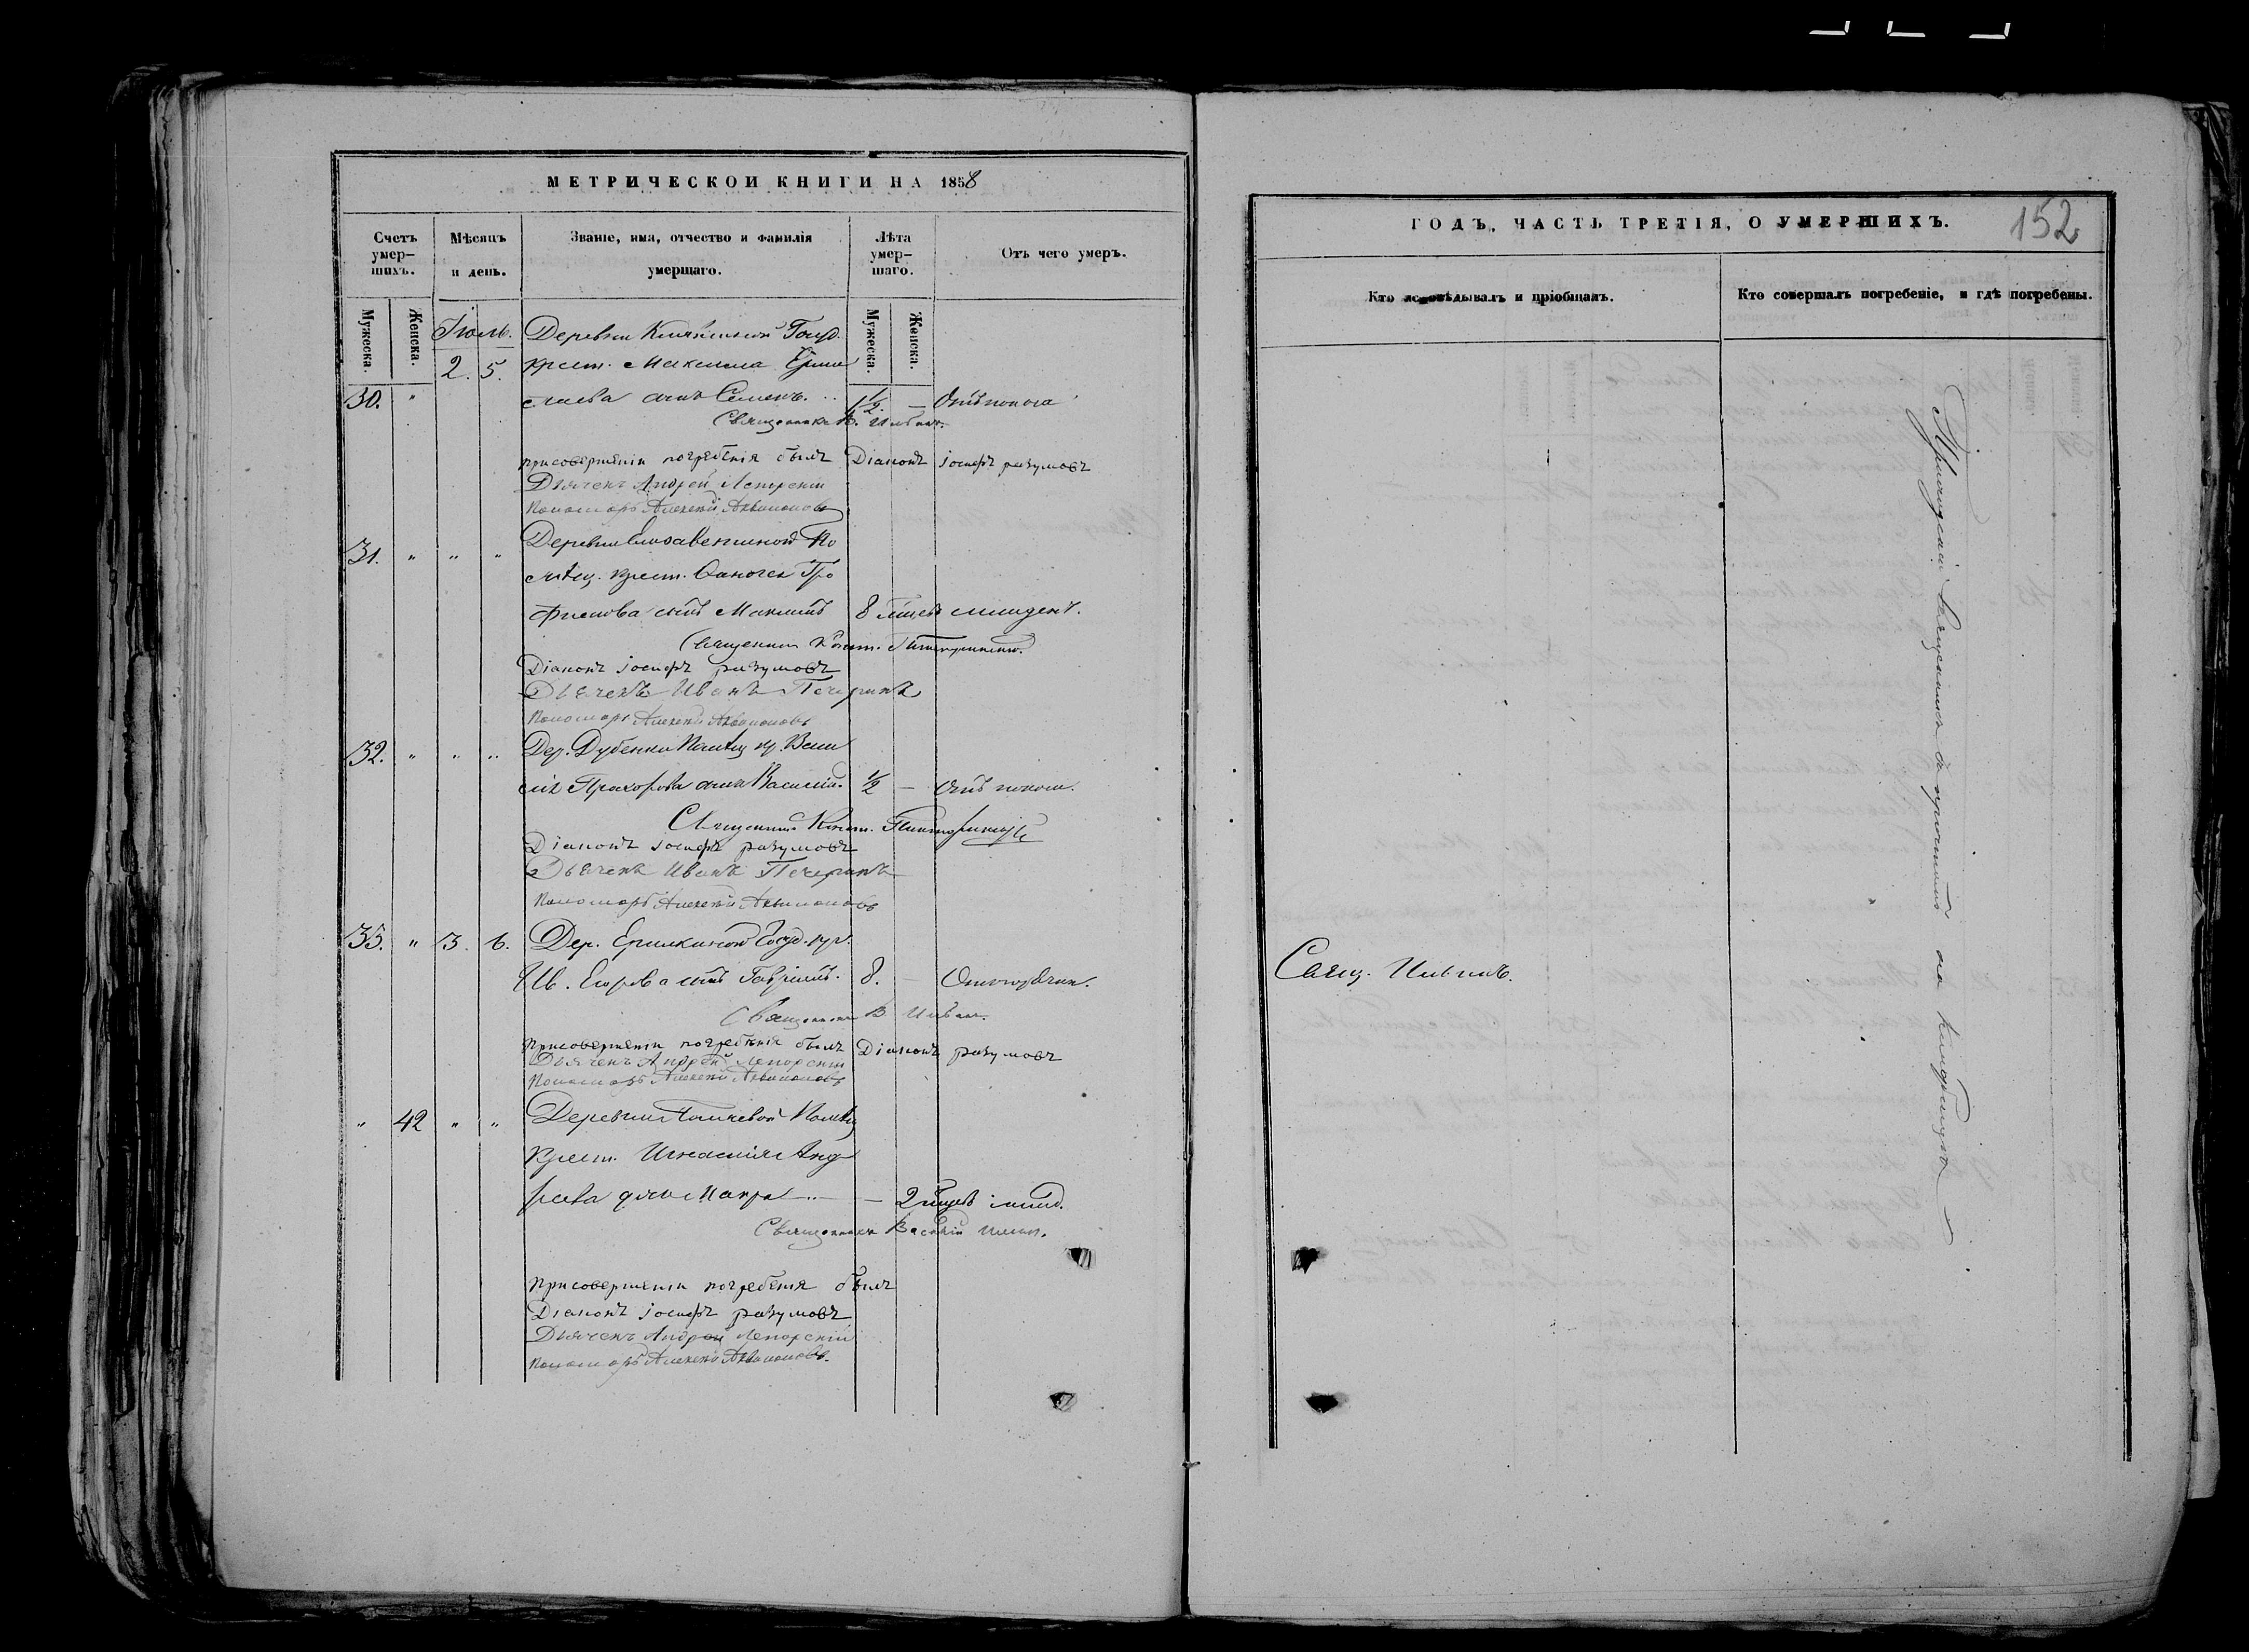 МЕТРИЧЕСКОЙ КНИГИ НА 1858
Счетъ умер-шихъ.
Мѣсяцъ и день.
Званіе, имя, отчество и фамилія умершаго.
Лѣта умер-шаго.
Отъ чего умеръ.
Мужеска.
Женска.
Мужеска.
Женска.
Іюль. Деревни Госуд.
2. 5. крест. Максима
30. " сынъ Семенъ. 1 1/2. — Отъ поноса
Священникъ В.
присовершеніи погребенія былъ Діаконъ іосифъ разумовъ
Дьячекъ Андрей Лепорскій
Пономарь Алексѣй Аквилоновъ
31. " " " Деревни Елизаветиной По
мѣщ. крест. Тро
фимова сынъ 8 младенч.
Священникъ Конст.
Діаконъ іосифъ разумовъ
Дьячекъ Иванъ Печеринъ
Пономарь Алексѣй Аквилоновъ
32. " " " Дер. Дубенки Помѣщ кр. Васи
лія Прохорова сынъ Василій. 1/2 — Отъ понос.
Священникъ Конст.
Діаконъ іосифъ разумовъ
Дьячекъ Иванъ Печеринъ
Пономарь Алексѣй Аквилоновъ
33. " 3. 6. Дер. Ермакиной Госуд. кр.
Ив. Егорова сынъ Гавріилъ. 8. —
Священникъ В.
присовершеніи погребенія былъ Діаконъ разумовъ
Дьячекъ Андрей Лепорскій
Пономарь Алексѣй Аквилоновъ
" 42 " " Деревни Помѣщ
Крест. Игнатія Анд
реева дочь — 2
Священникъ Василій
Присовершеніи погребенія былъ
Діаконъ іосифъ разумовъ
Дьячекъ Андрей Лепорскій
Пономарь Алексѣй Аквилоновъ.
ГОДЪ, ЧАСТЬ ТРЕТІЯ, О УМЕРШИХЪ. 152
Кто исповѣдывалъ и пріобщалъ.
Кто совершалъ погребеніе, и гдѣ погребены.
Свящ.
Приходскій Священникъ съ причтомъ на кладбищѣ